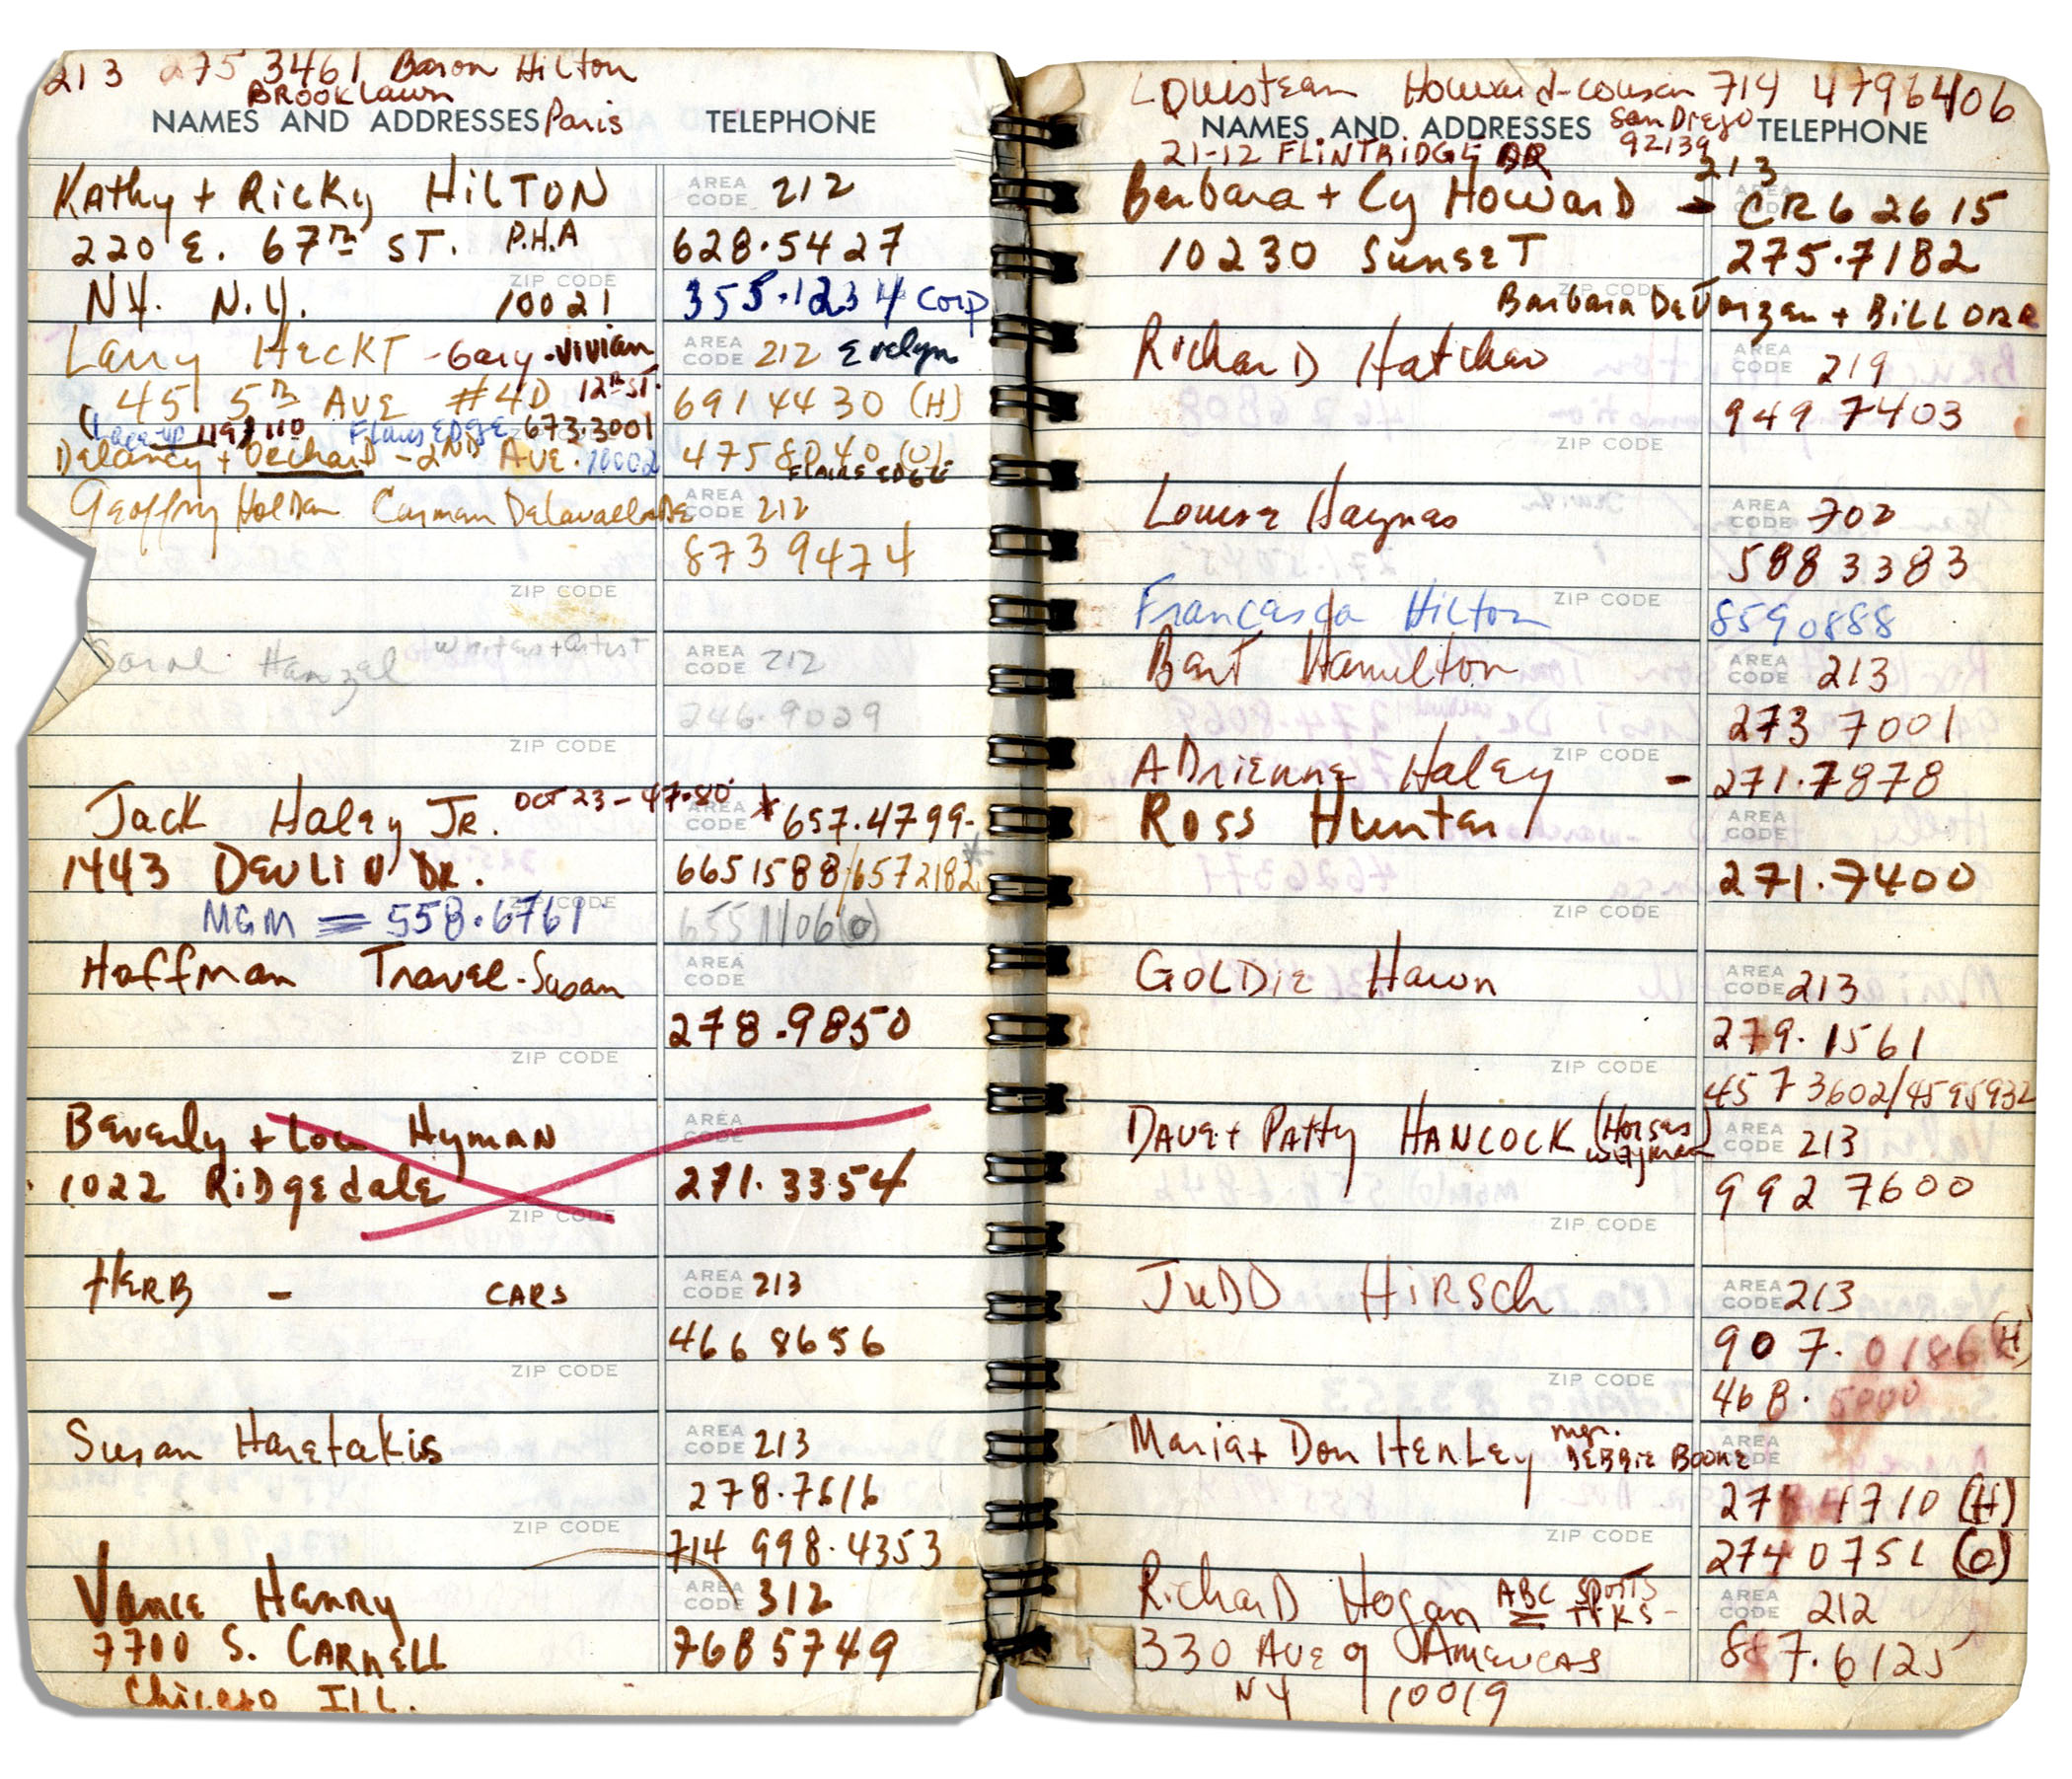 213 275 3461 Baron Hilton
BROOKlawn
NAMES AND ADDRESSES Paris TELEPHONE
Kathy + Ricky HILTON AREA CODE 212
220 E. 67TH ST. P.H.A 628.5427
NY. N.Y. ZIP CODE 10021 355.1234 Corp
Larry HECKT - Gary - Vivian AREA CODE 212 Evelyn
45 5TH AVE #4D 12TH ST. 691 4430 (H)
673.3001
Delancy + Orchard - 2ND AVE. 10002 475 8040 (O)
FLAIRE EDGE
Geoffry Holder Carman Delavallade AREA CODE 212
873 9474
ZIP CODE
Carol Hanzel writers + artist AREA CODE 212
246.9029
ZIP CODE
Jack Haley Jr. OCT 23 - 47.80 AREA CODE * 657.4799-
1443 DEVLIN DR. 665 1588/657 2182 *
MGM = 558.6761 ZIP CODE 655 1106 (o)
Hoffman Travel - Susan AREA CODE
278.9850
ZIP CODE
Beverly + Lou Hyman AREA CODE
1022 RiDgedale 271.3354
ZIP CODE
HERB - CARS AREA CODE 213
466 8656
ZIP CODE
Susan Haretakis AREA CODE 213
278.7616
ZIP CODE 714 998.4353
Vance Henry AREA CODE 312
7700 S. CARNELL 768 5749
Chicago ILL.
Howard-cousin 714 479 6406
NAMES AND ADDRESSES San Diego TELEPHONE
21-12 FLINTRIDGE DR 92139
213
Barbara + Cy Howard - AREA CODE CR6 2615
10230 SunseT 275.7182
ZIP CODE
Barbara DeVorzan + BILL ORR
RicharD Hatcher AREA CODE 219
949 7403
ZIP CODE
Louise Haynes AREA CODE 702
588 3383
Francesca Hilton ZIP CODE 859 0888
Bert Hamilton AREA CODE 213
273 7001
ADrienne Haley ZIP CODE - 271.7878
Ross Hunter AREA CODE
271.7400
ZIP CODE
GOLDIE Hawn AREA CODE 213
279.1561
ZIP CODE 457 3602/459 5932
DAVE + PATTY HANCOCK (Horses AREA CODE 213
992 7600
ZIP CODE
JUDD HIRSCH AREA CODE 213
907.0186 (H)
ZIP CODE 468.5000
Maria + Don HENLEY mgr. DEBBIE BOONE AREA CODE
4710 (H)
ZIP CODE 274 0751 (O)
RicharD Hogan ABC SPORTS TPKS - AREA CODE 212
1330 AVE of AMERICAS 887.6125
NY 10019